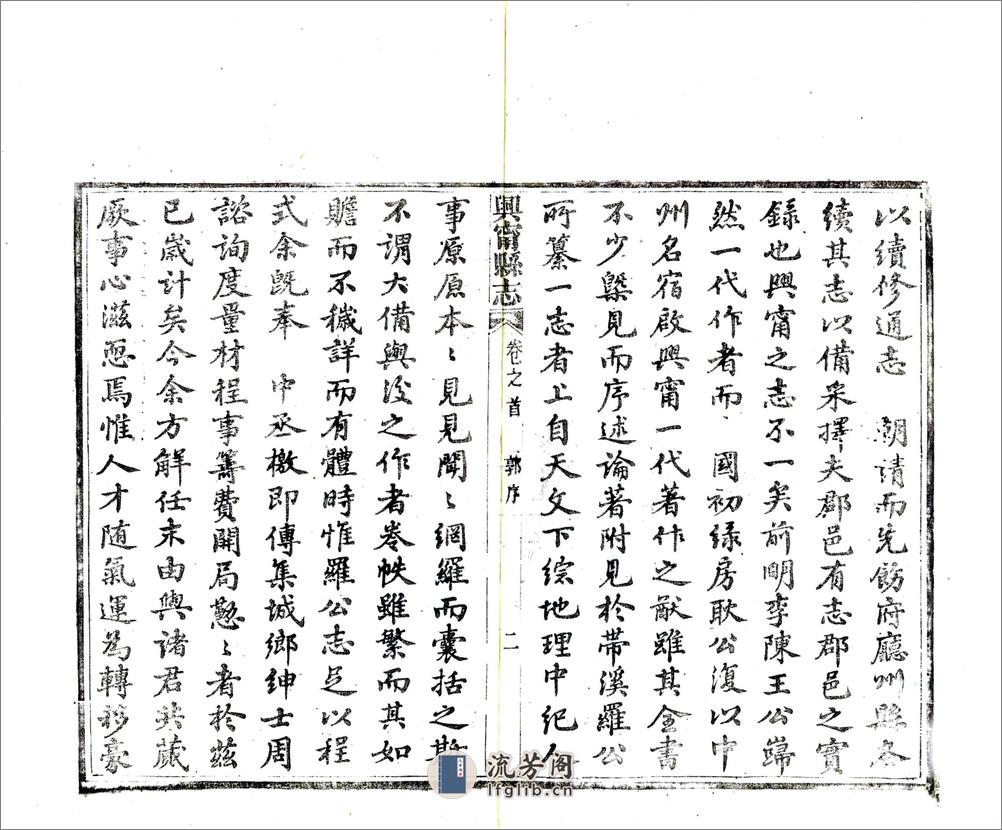 以續修通志　朝請而先飭府廳州縣各
續其志以備采擇夫郡邑有志郡邑之實
錄也興甯之志不一矣前明李陳王公巋
然一代作者而　國初綠房耿公復以中
州名宿啟興甯一代著作之猷雖其全書
不少槩見而序述論著附見於帶溪羅公
所纂一志者上自天文下綜地理中紀人
興甯縣志
卷之首　郭序　二
事原原本〻見見聞〻網羅而囊括之斯
不謂大備與後之作者卷帙雖繁而其如
贍而不穢詳而有體時惟羅公志足以程
式余旣奉　中丞檄即傳集城鄉紳士周
諮詢度量材程事籌費開局懃〻者於茲
已歲計矣今余方解任末由與諸君共蕆
厥事心滋恧焉惟人才隨氣運為轉移豪
流芳阁
lfglib.cn